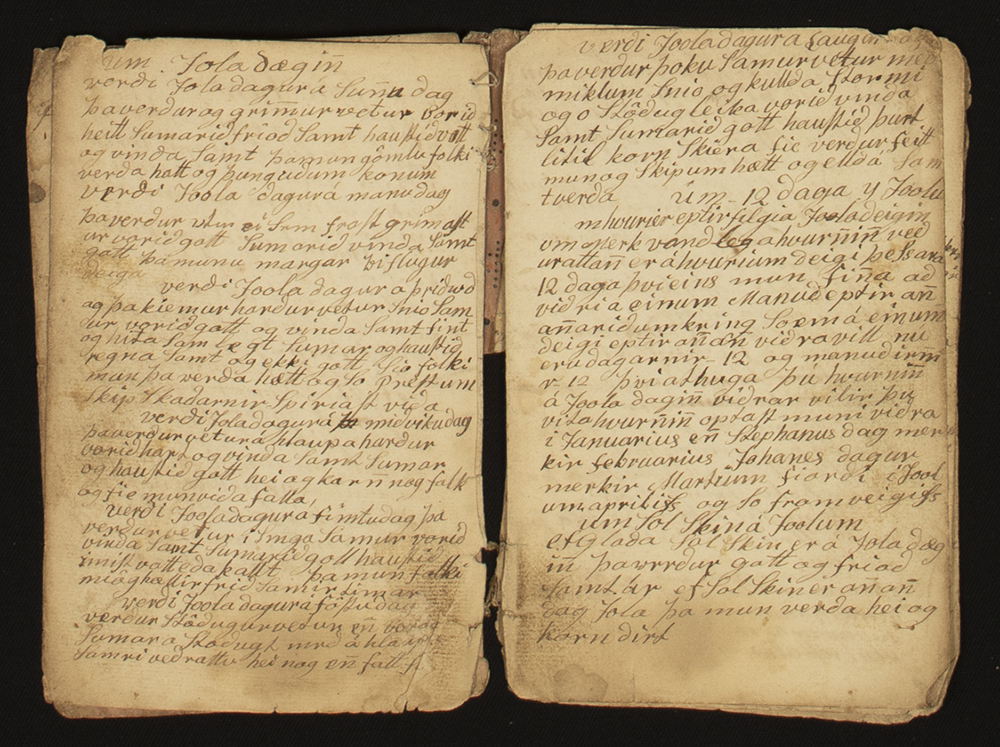 um Jola dæginn
verdi Jola dagur á Sunu dag
þa verdur og grimur vetur vorid
heitt Sumarid friad Samt haustid vott
og vinda Samt þa mun gômlu folki
verda hætt og þungudum konum
verdi Joola dagur á manudag
þa verdur vetur ei Sem frost grimast
ur vorid gott Sumarid vinda Samt
gott þa munu margar biflugur
deiga
verdi Joola dagur a þridiud
ag þa kiemur hardur vetur Snio Sam
ur vorid gott og vinda Samt Sint
og hita Samlegt Sumar og haustid
regna Samt og ekki gott Sio folki
mun þa verda hætt og So Prestum
Skip Skadarnir Spiriast vida
verdi Joladagur á midvikudag
þa verdur vetur á hlaupa hardur
vorid hart og vinda Samt Sumar
og haustid gott hei og karn nog folk
og fie mun vida falla,
verdi Joola dagur a fimtudag þa
verdur vetur i Smga Samur vorid
vinda Samt Sumarid gott haustid
vott eda kallt þa mun folki
miog hættir frid Samir timar
verdi Joola dagur a föstu dag
verdur Stödugur vetur en vorog
Sumar a Stödugt med á hlaupa
Samri vedrattu hei nog en fall f
verdi Joola dagur a Laugar
þa verdur þoku Samur vetur med
miklum Snio og kullda Stormi
og o Stödugleika vorid vinda
Samt Sumarid gott haustid þurt
litil korn Skiera fie verdur feitt
mun og Skipum hætt og ellda Sam
t verda um 12 daga y Joolu
m hvurier eptir filgia Jooladeigin
um Merk vandlega hvurninn ved
urattan er á hvurium deigi þessara
12 daga þvi eins mun finna ad
vidria einum Manud eptir an
annarid um kring So em á einum
deigi eptir annan vidra vill nu
eru dagarnir 12 og manudirn
r 12 þvi at huga þu hvurninn
á Joola dagin vidrar vilir þu
vita hvurnin optast muni vidra
i Januarius en Stephanus dag mer
kir februarius Johanes dagur
merkir Martium fiordi i Jool
um aprilis og So framveigis
um Sol Skin á Joolum
ef glada Sol Skin er á Jola dæg
inn þa verdur gott og friad
Samt ár ef Sol Skin er annan
dag Jola þa mun verda hei og
korn dirt